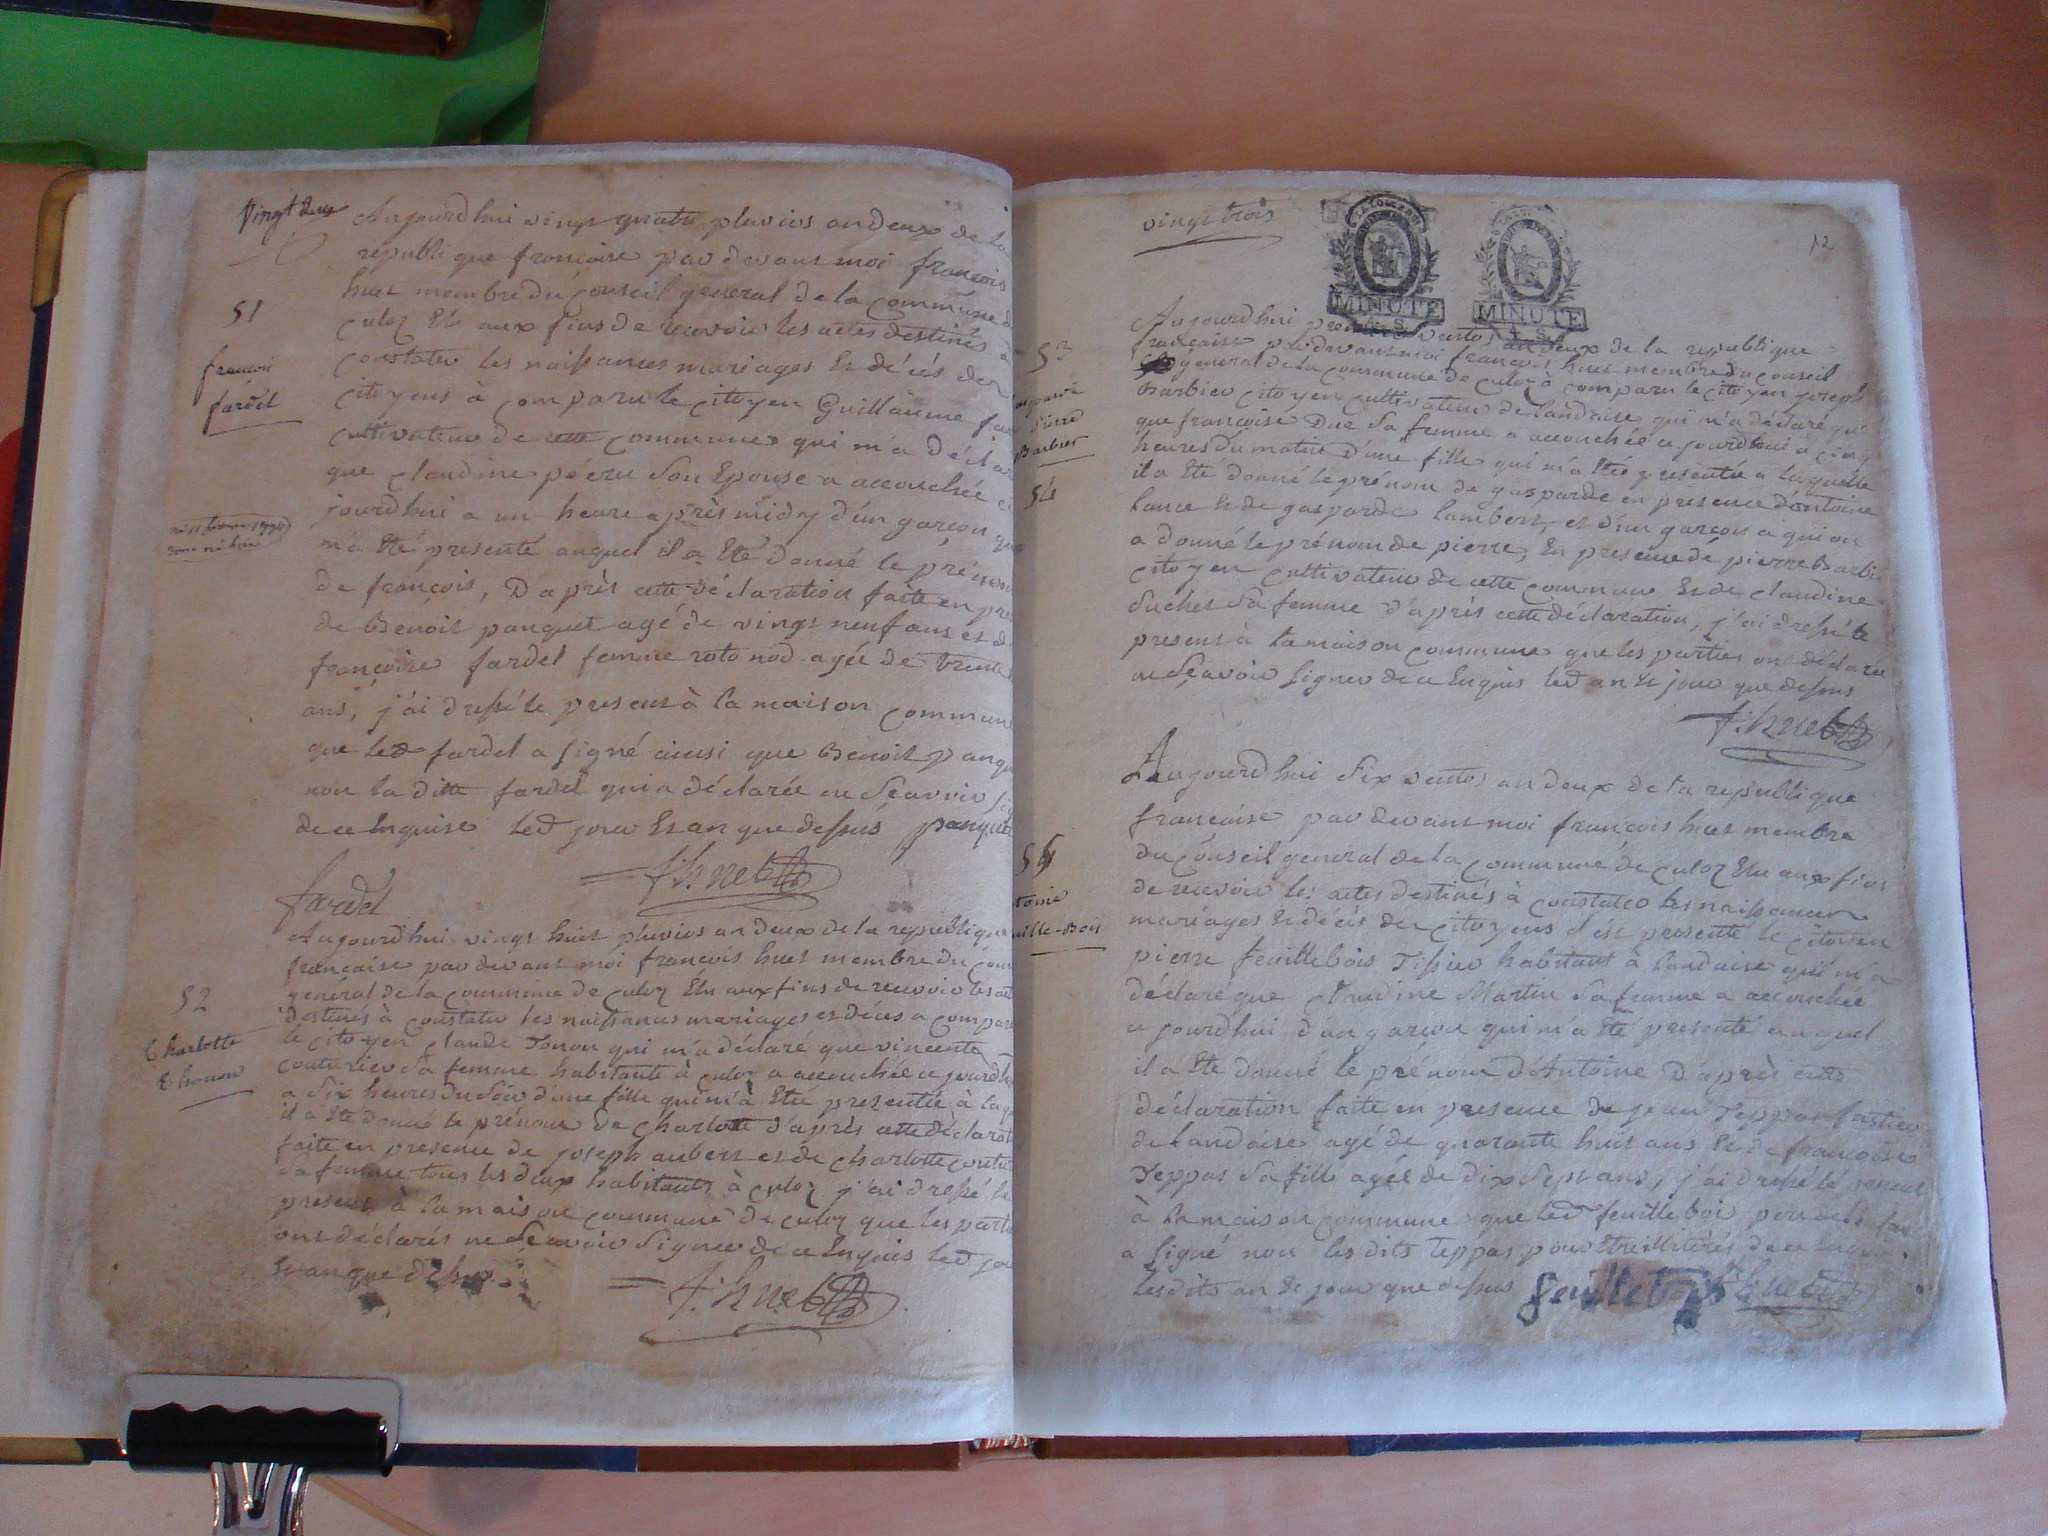 vingt deux
Aujourdhui vingt quatre pluvios an deux de la
republique francoise par devant moi françois
huet membre du Conseil general de la Commune d
culoz Elu aux fins de recevoir les actes destinés à
constater les naissances mariages et décés des
51
françois
fardel
citoyens à comparu le citoyen Guillaume far
cultivateur de cette commune qui m'a décla
que claudine pécru son Epouse a accouchée ce
jourdhui a un heure après midy d'un garçon qui
m'a Eté presenté auquel il a Eté donné le prénom
de françois, D'après cette déclaration faite en pres
de Benoit panquet agé de vingt neuf ans et de
françoise fardel femme agée de trente
ans, j'ai dressé le present à la maison commune
que led fardel a signé ainsi que Benoit panqu
non la ditte fardel qui a déclarée ne Scavoir si
de ce Enquise led jour Et an que dessus panquet
fardel F. huet
Aujourdhui vingt huit pluvios an deux de la republique
francaise par devant moi francois huet membre du Cons
général de la Commune de culoz Elu aux fins de recevoir les act
destinés à constater les naissances mariages et décés a compar
52
Charlotte
Thonon
le citoyen claude Tonon qui m'a déclaré que vincente
couturier sa femme habitante à culoz a accouchée ce jourdh
a six heures du Soir d'une fille qui m'a Eté presentée à laq
il a Eté donné le prénom de Charlotte d'après cette déclarat
faite en presence de joseph aubert et de Charlotte coutur
sa femme tous les deux habitants à culoz j'ai dressé le
present à la maison commune de culoz que les parti
ont déclarés ne Scavoir Signer de ce Enquis led jou
Et an que dessus
F. huet
vingt trois
12
MINUTE
4. S.
MINUTE
4. S.
Aujourdhui premier ventos an deux de la republique
francaise par devant moi francois huet membre du conseil
general de la commune de culoz à comparu le citoyen joseph
Barbier citoyen cultivateur de landaise qui m'a déclaré que
que françoise Duc Sa femme a accouchée ce jourdhui à cinq
heures du matin d'une fille qui m'a Eté presentée a laquelle
il a Eté donné le prénom de gasparde en presence d'antoine
lance et de gasparde lambert, et d'un garcon a qui on
a donné le prénom de pierre, En presence de pierre Barbie
citoyen cultivateur de cette commune Et de claudine
Suchet Sa femme d'après cette déclaration, j'ai dressé le
present à la maison commune que les parties ont déclaré
ne Sçavoir Signer de ce Enquis led an Et jour que dessus
53
pierre
Barbier
54
F. huet
Aujourdhui six ventos an deux de la republique
francaise par devant moi francois huet membre
du Conseil general de la Commune de culoz Elu aux fins
de recevoir les actes destinés à constater les naissances
mariages Et décés des citoyens s'est presenté le citoyen
pierre feuillebois Tissier habitant à landaise qui m'a
déclaré que Claudine Martin Sa femme a accouchée
ce jourdhui d'un garcon qui m'a Eté presenté auquel
il a Eté donné le prénom d'Antoine D'après cette
déclaration faite en presence de jean Teppas
de landaise agé de quarante huit ans Et de francoise
Teppas Sa fille agée de dix sept ans, j'ai dressé le present
à la maison commune que led feuillebois
a signé non les dits Teppas pour Etre illiterés de ce Enquis
lesdits an Et jour que dessus feuillebois F. huet
55
toine
uille-Bois